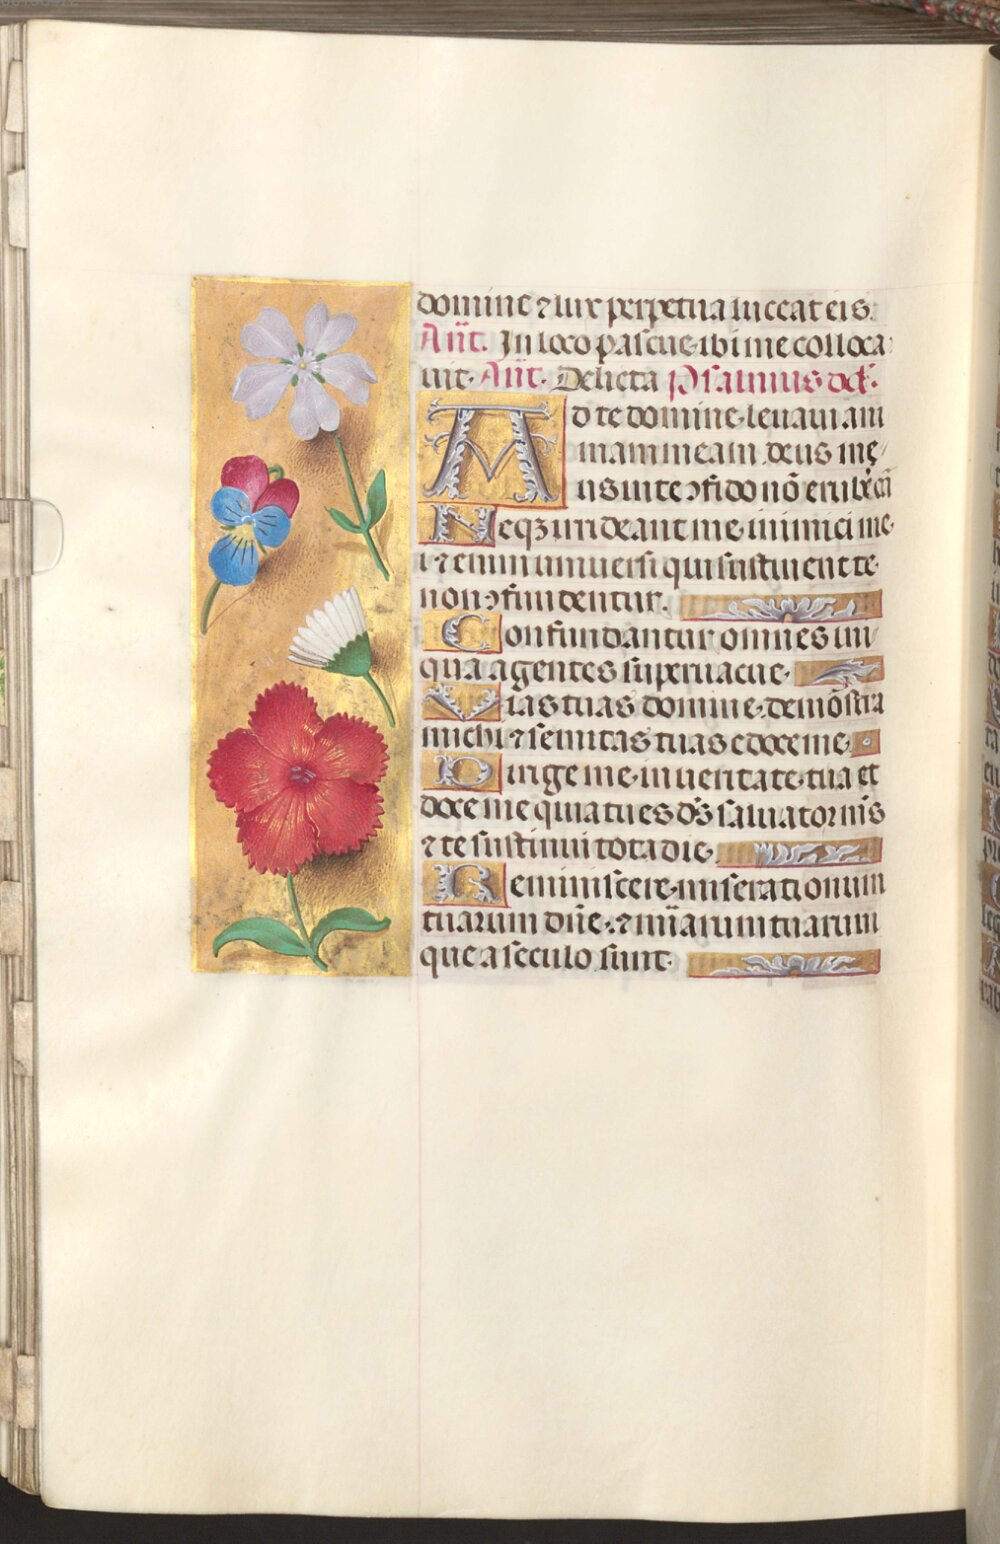 domine ⁊ lux perpetua luceat eis.
Añt. In loco pascue·ibi me colloca
uit· Añt· Delicta Psalmus dd̃·
Ad te domine·leuaui ani
mam meam deus me
us in te ɔfido nõ erubescã
Neqꝫ irrideant me·inimici me
i·⁊ enim uniuersi qui sustinent te·
non ɔfundentur.
Confundantur omnes ini
qua agentes superuacue·
Vias tuas domine·demõstra
michi ⁊ semitas tuas edoce me·
Dirige me·in ueritate·tua et
doce me quia tu es ds̃ saluator nr̃s
⁊ te sustinui tota die·
Reminiscere·miserationum
tuarum dñe·⁊ mĩarum tuarum
que a seculo sunt·